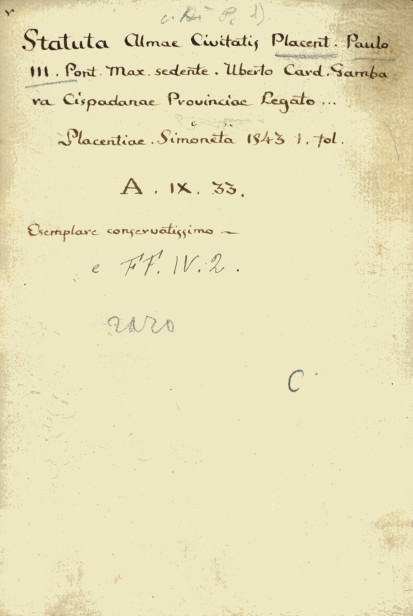 Statuta Almae Civitatis Placent. Paulo
III. Pont. Max. sedente. Uberto Card. Gamba
ra Cispadanae Provinciae Legato...
Placentiae. Simoneta 1543 i. fol.
A. IX. 33.
Esemplare conservatissimo —
e FF. IV. 2.
raro
C